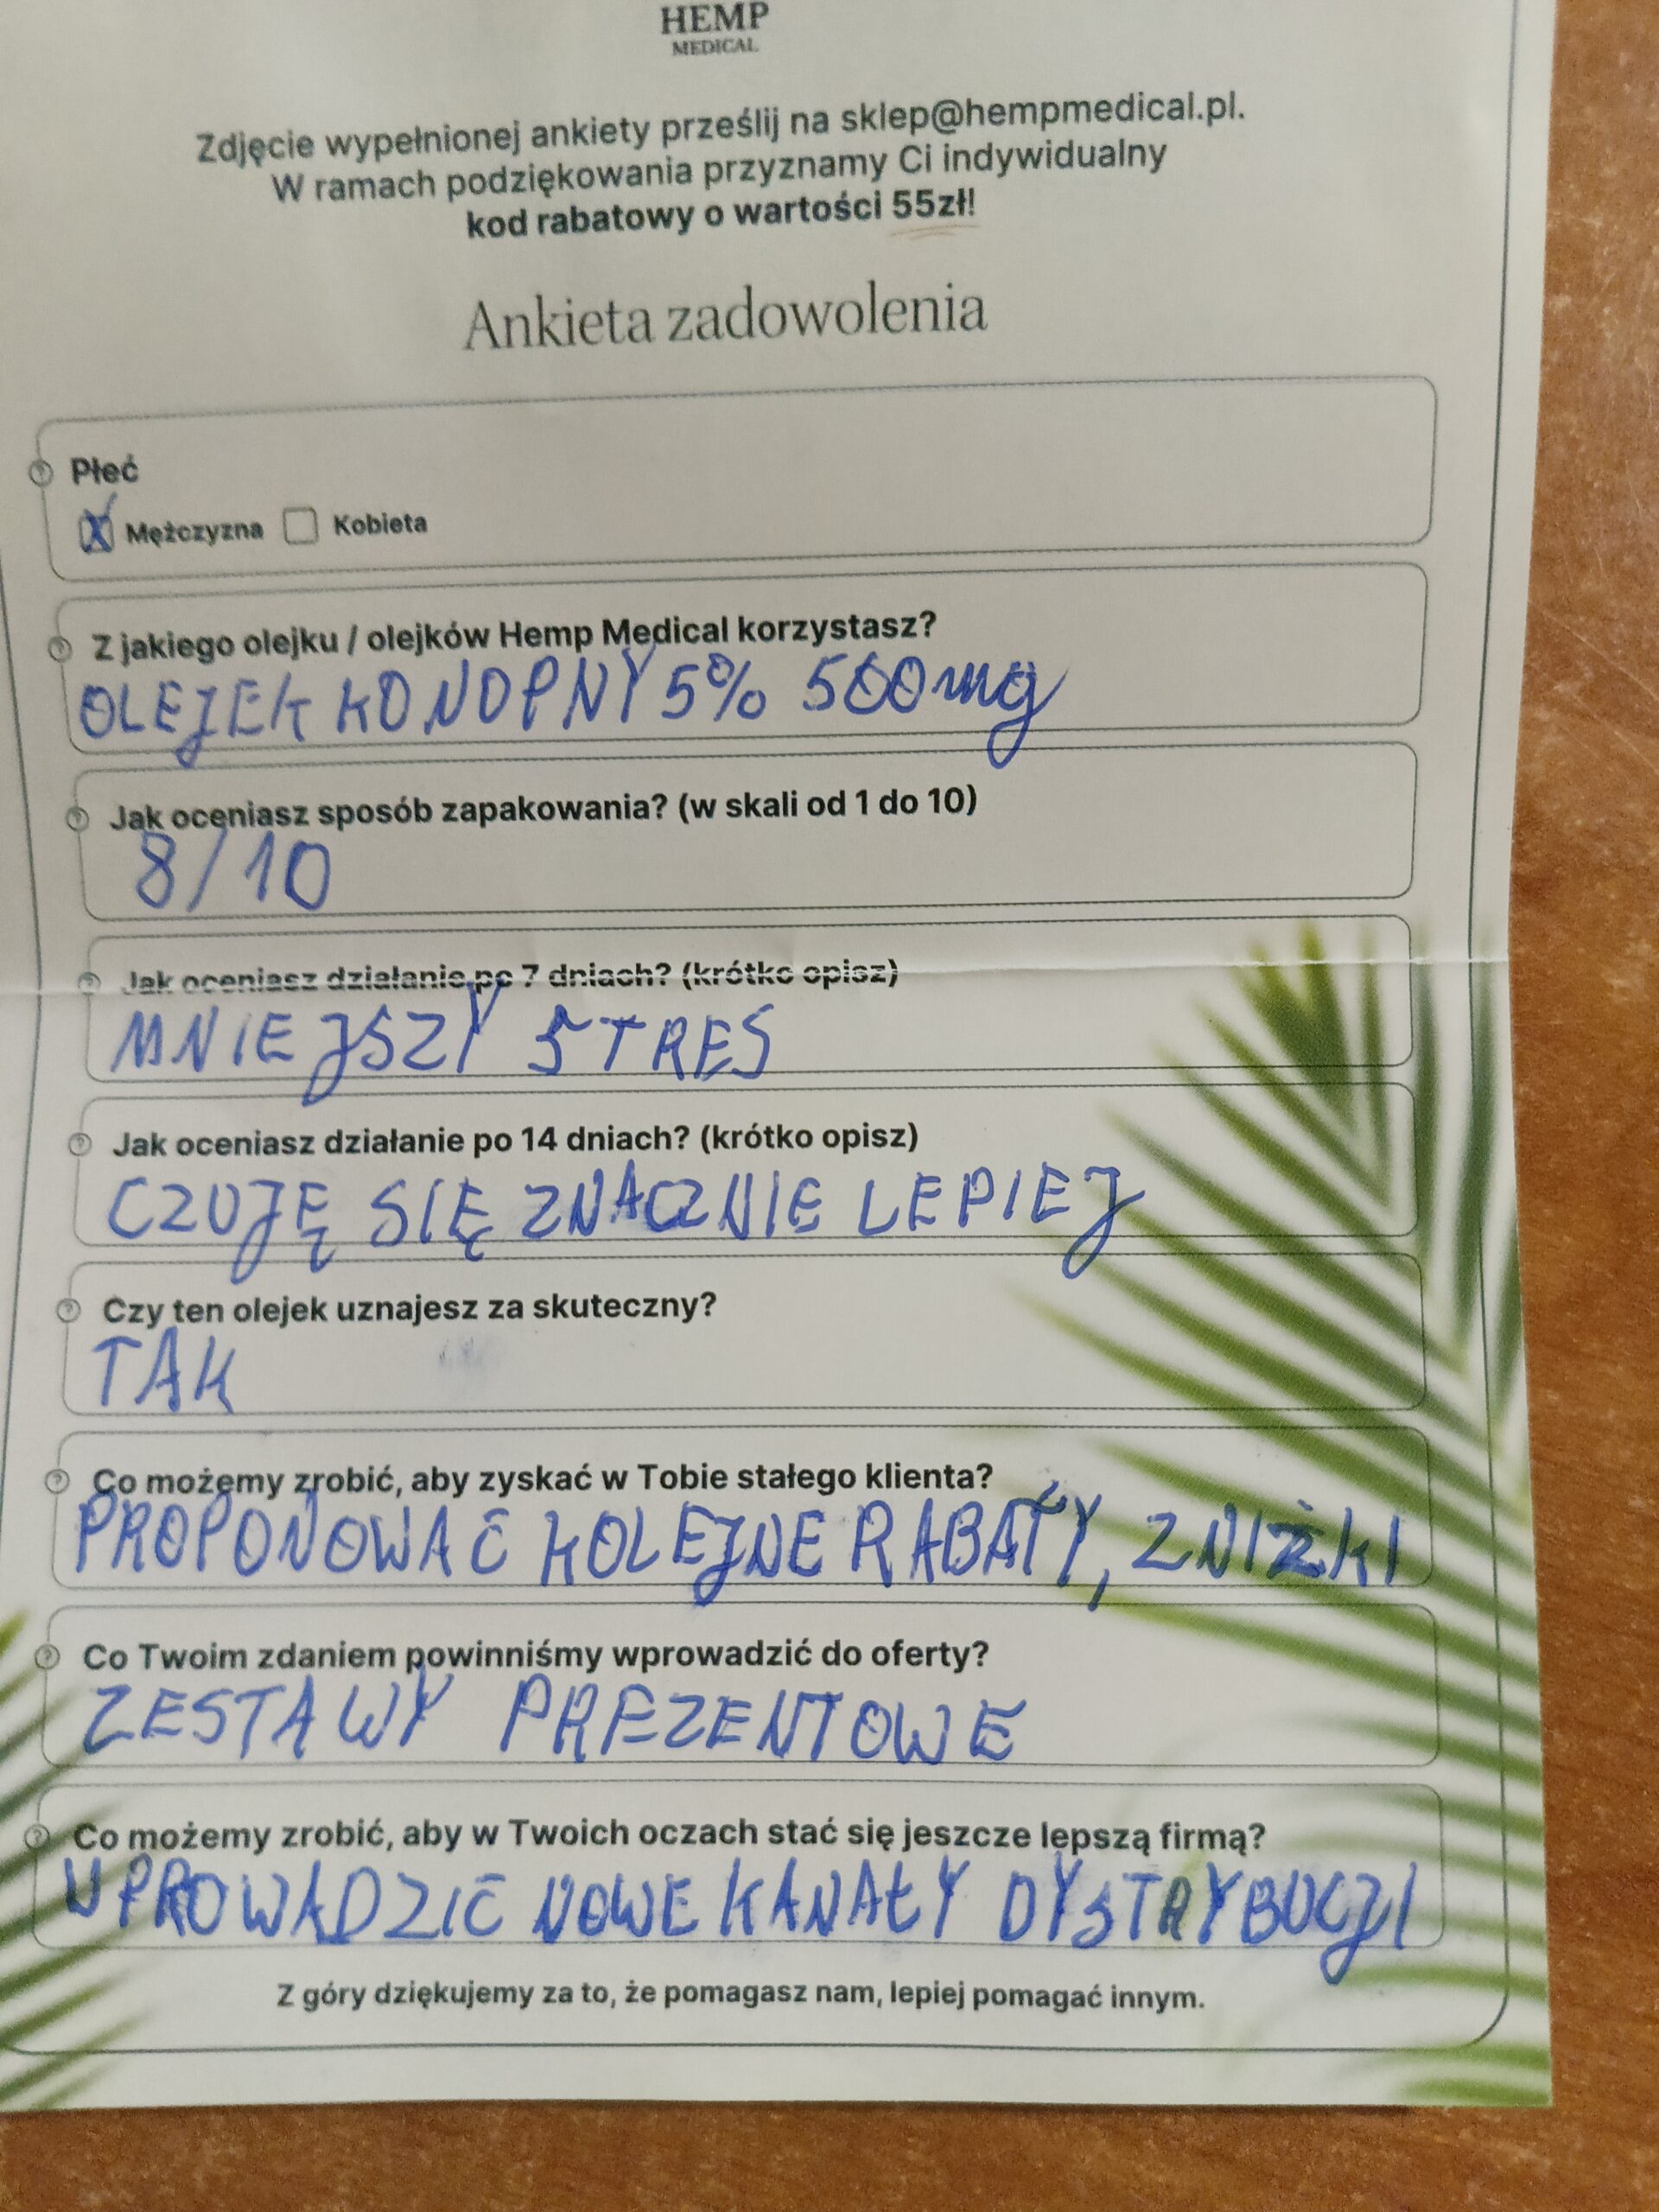 HEMP
MEDICAL
Zdjęcie wypełnionej ankiety prześlij na sklep@hempmedical.pl.
W ramach podziękowania przyznamy Ci indywidualny
kod rabatowy o wartości 55zł!
Ankieta zadowolenia
Płeć
X Mężczyzna Kobieta
Z jakiego olejku / olejków Hemp Medical korzystasz?
OLEJEK KONOPNY 5% 500mg
Jak oceniasz sposób zapakowania? (w skali od 1 do 10)
8/10
Jak oceniasz działanie po 7 dniach? (krótko opisz)
MNIEJSZY STRES
Jak oceniasz działanie po 14 dniach? (krótko opisz)
CZUJĘ SIĘ ZNACZNIE LEPIEJ
Czy ten olejek uznajesz za skuteczny?
TAK
Co możemy zrobić, aby zyskać w Tobie stałego klienta?
PROPONOWAĆ KOLEJNE RABATY, ZNIŻKI
Co Twoim zdaniem powinniśmy wprowadzić do oferty?
ZESTAWY PREZENTOWE
Co możemy zrobić, aby w Twoich oczach stać się jeszcze lepszą firmą?
WPROWADZIĆ NOWE KANAŁY DYSTRYBUCJI
Z góry dziękujemy za to, że pomagasz nam, lepiej pomagać innym.